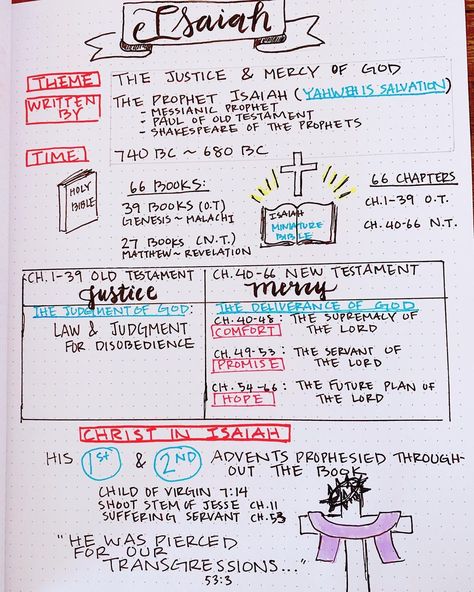 Isaiah
THEME THE JUSTICE & MERCY OF GOD
WRITTEN BY THE PROPHET ISAIAH (YAHWEH IS SALVATION)
- MESSIANIC PROPHET
- PAUL OF OLD TESTAMENT
- SHAKESPEARE OF THE PROPHETS
TIME 740 BC ~ 680 BC
HOLY BIBLE
66 BOOKS:
39 BOOKS (O.T)
GENESIS ~ MALACHI
27 BOOKS (N.T.)
MATTHEW ~ REVELATION
ISAIAH
MINIATURE
BIBLE
66 CHAPTERS
CH.1-39 O.T.
CH.40-66 N.T.
CH.1-39 OLD TESTAMENT
Justice
THE JUDGMENT OF GOD:
LAW & JUDGMENT
FOR DISOBEDIENCE
CH.40-66 NEW TESTAMENT
Mercy
THE DELIVERANCE OF GOD
CH.40-48: THE SUPREMACY OF
COMFORT THE LORD
CH.49-53: THE SERVANT OF
PROMISE THE LORD
CH.54-66: THE FUTURE PLAN OF
HOPE THE LORD
CHRIST IN ISAIAH
HIS 1st & 2ND ADVENTS PROPHESIED THROUGH-
OUT THE BOOK
CHILD OF VIRGIN 7:14
SHOOT STEM OF JESSE CH.11
SUFFERING SERVANT CH.53
"HE WAS PIERCED
FOR OUR
TRANSGRESSIONS..."
53:3